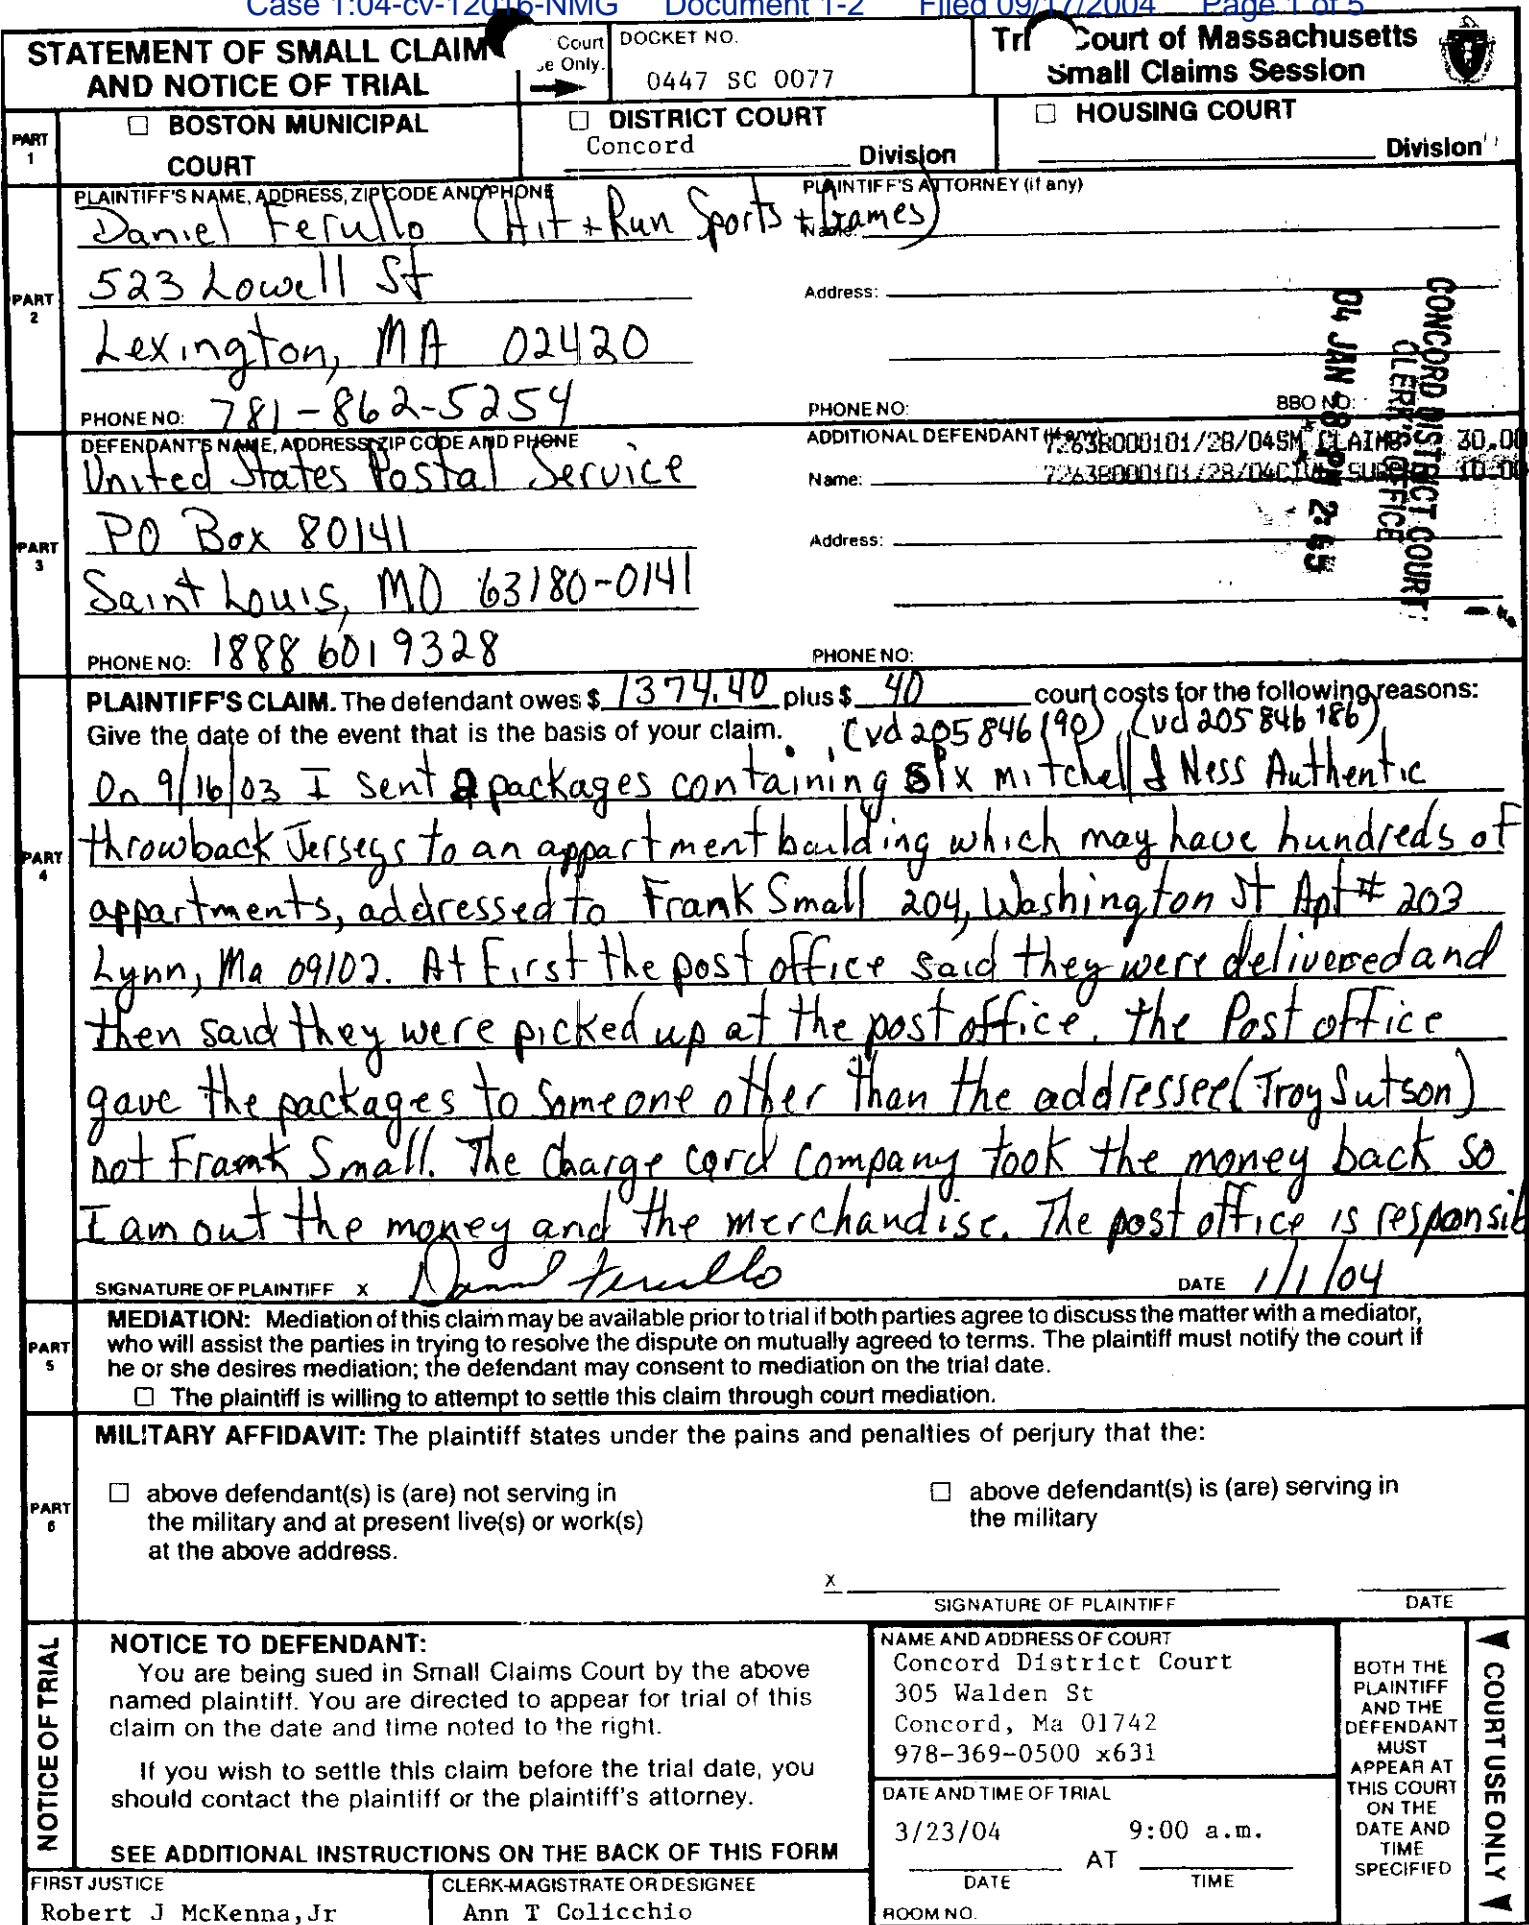 Case 1:04-cv-12016-NMG Document 1-2 Filed 09/17/2004 Page 1 of 5
STATEMENT OF SMALL CLAIM
AND NOTICE OF TRIAL
Court
Only.
DOCKET NO.
0447 SC 0077
Court of Massachusetts
Small Claims Session
PART
1
☐ BOSTON MUNICIPAL
COURT
☐ DISTRICT COURT
Concord
Division
☐ HOUSING COURT
Division
PART
2
PLAINTIFF'S NAME, ADDRESS, ZIP CODE AND PHONE
Daniel Ferullo (Hit + Run Sports + Games)
523 Lowell St
Lexington, MA 02420
PHONE NO: 781-862-5254
PLAINTIFF'S ATTORNEY (if any)
Name:
Address:
PHONE NO:
BBO NO:
CONCORD DISTRICT COURT
CLERK'S OFFICE
04 JAN 28 PM 2:
PART
3
DEFENDANT'S NAME, ADDRESS, ZIP CODE AND PHONE
United States Postal Service
PO Box 80141
Saint Louis, MO 63180-0141
PHONE NO: 1888 601 9328
ADDITIONAL DEFENDANT
7263B000101/28/04SM CLAIMS 30.00
7263B000101/28/04CIV SUR 10.00
Name:
Address:
PHONE NO:
PART
4
PLAINTIFF'S CLAIM. The defendant owes $ 1374.40 plus $ 40 court costs for the following reasons:
Give the date of the event that is the basis of your claim. (vd 205 846 190), (vd 205 846 186)
On 9/16/03 I sent 2 packages containing six mitchell & Ness Authentic
throwback Jerseys to an appartment building which may have hundreds of
appartments, addressed to Frank Small 204, Washington St Apt # 203
Lynn, Ma 09102. At First the post office said they were delivered and
then said they were picked up at the post office. the Post office
gave the packages to someone other than the addressee (Troy Sutson)
not Frank Small. The Charge card company took the money back so
I am out the money and the merchandise. The post office is responsib
SIGNATURE OF PLAINTIFF X Daniel Ferullo DATE 1/1/04
PART
5
MEDIATION: Mediation of this claim may be available prior to trial if both parties agree to discuss the matter with a mediator,
who will assist the parties in trying to resolve the dispute on mutually agreed to terms. The plaintiff must notify the court if
he or she desires mediation; the defendant may consent to mediation on the trial date.
☐ The plaintiff is willing to attempt to settle this claim through court mediation.
PART
6
MILITARY AFFIDAVIT: The plaintiff states under the pains and penalties of perjury that the:
☐ above defendant(s) is (are) not serving in
the military and at present live(s) or work(s)
at the above address.
☐ above defendant(s) is (are) serving in
the military
X
SIGNATURE OF PLAINTIFF
DATE
NOTICE OF TRIAL
NOTICE TO DEFENDANT:
You are being sued in Small Claims Court by the above
named plaintiff. You are directed to appear for trial of this
claim on the date and time noted to the right.
If you wish to settle this claim before the trial date, you
should contact the plaintiff or the plaintiff's attorney.
SEE ADDITIONAL INSTRUCTIONS ON THE BACK OF THIS FORM
NAME AND ADDRESS OF COURT
Concord District Court
305 Walden St
Concord, Ma 01742
978-369-0500 x631
DATE AND TIME OF TRIAL
3/23/04 9:00 a.m.
AT
DATE TIME
ROOM NO.
BOTH THE
PLAINTIFF
AND THE
DEFENDANT
MUST
APPEAR AT
THIS COURT
ON THE
DATE AND
TIME
SPECIFIED
COURT USE ONLY
FIRST JUSTICE
Robert J McKenna,Jr
CLERK-MAGISTRATE OR DESIGNEE
Ann T Colicchio